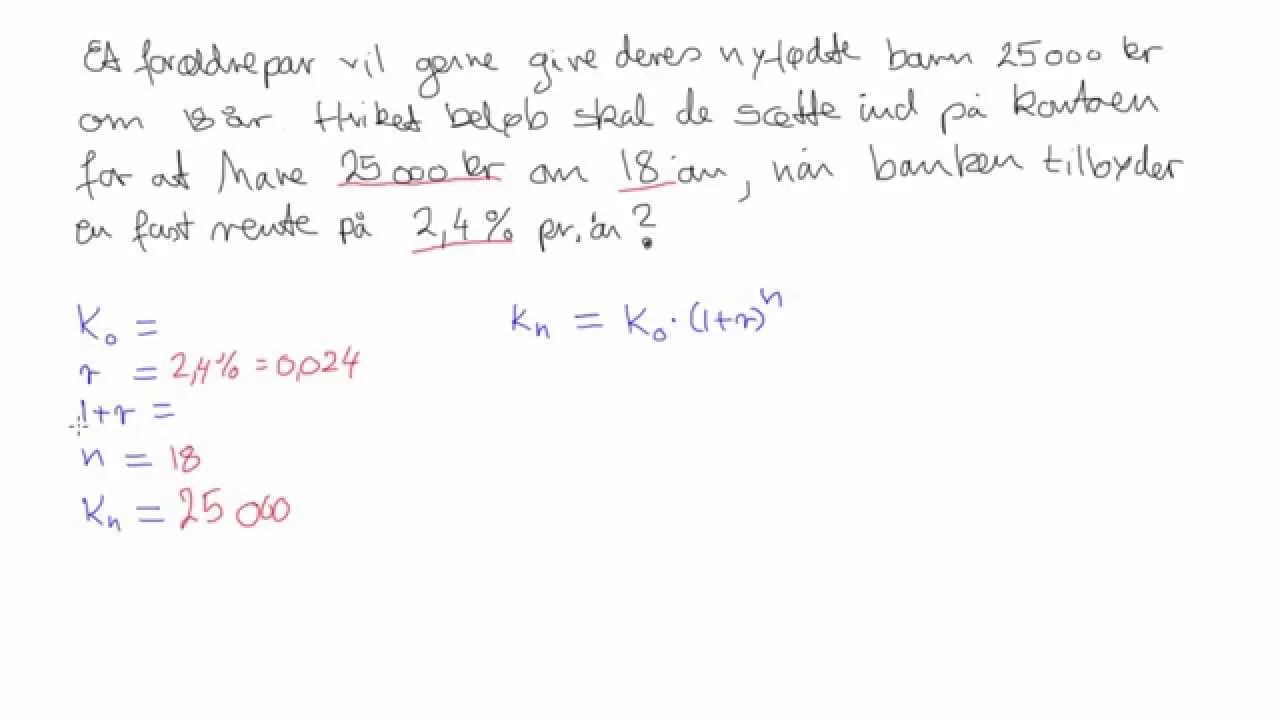 Et forældrepar vil gerne give deres nyfødte barn 25000 kr
om 18 år. Hvilket beløb skal de sætte ind på kontoen
for at have 25000 kr om 18 år, når banken tilbyder
en fast rente på 2,4% pr. år?
K₀ =
Kₙ = K₀ · (1+r)ⁿ
r = 2,4% = 0,024
1+r =
n = 18
Kₙ = 25 000